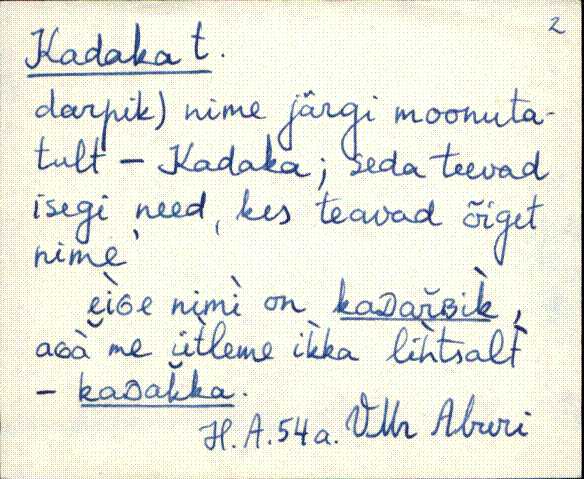 2
Kadaka t.
darpik) nime järgi moonuta-
tult – Kadaka; seda teevad
isegi need, kes teavad õiget
nime
èiɢe nimì on kaᴅařʙìk,
aɢà me ǜtleme ìkka lìhtsalt
– kaᴅaǩka.
H.A.54a.